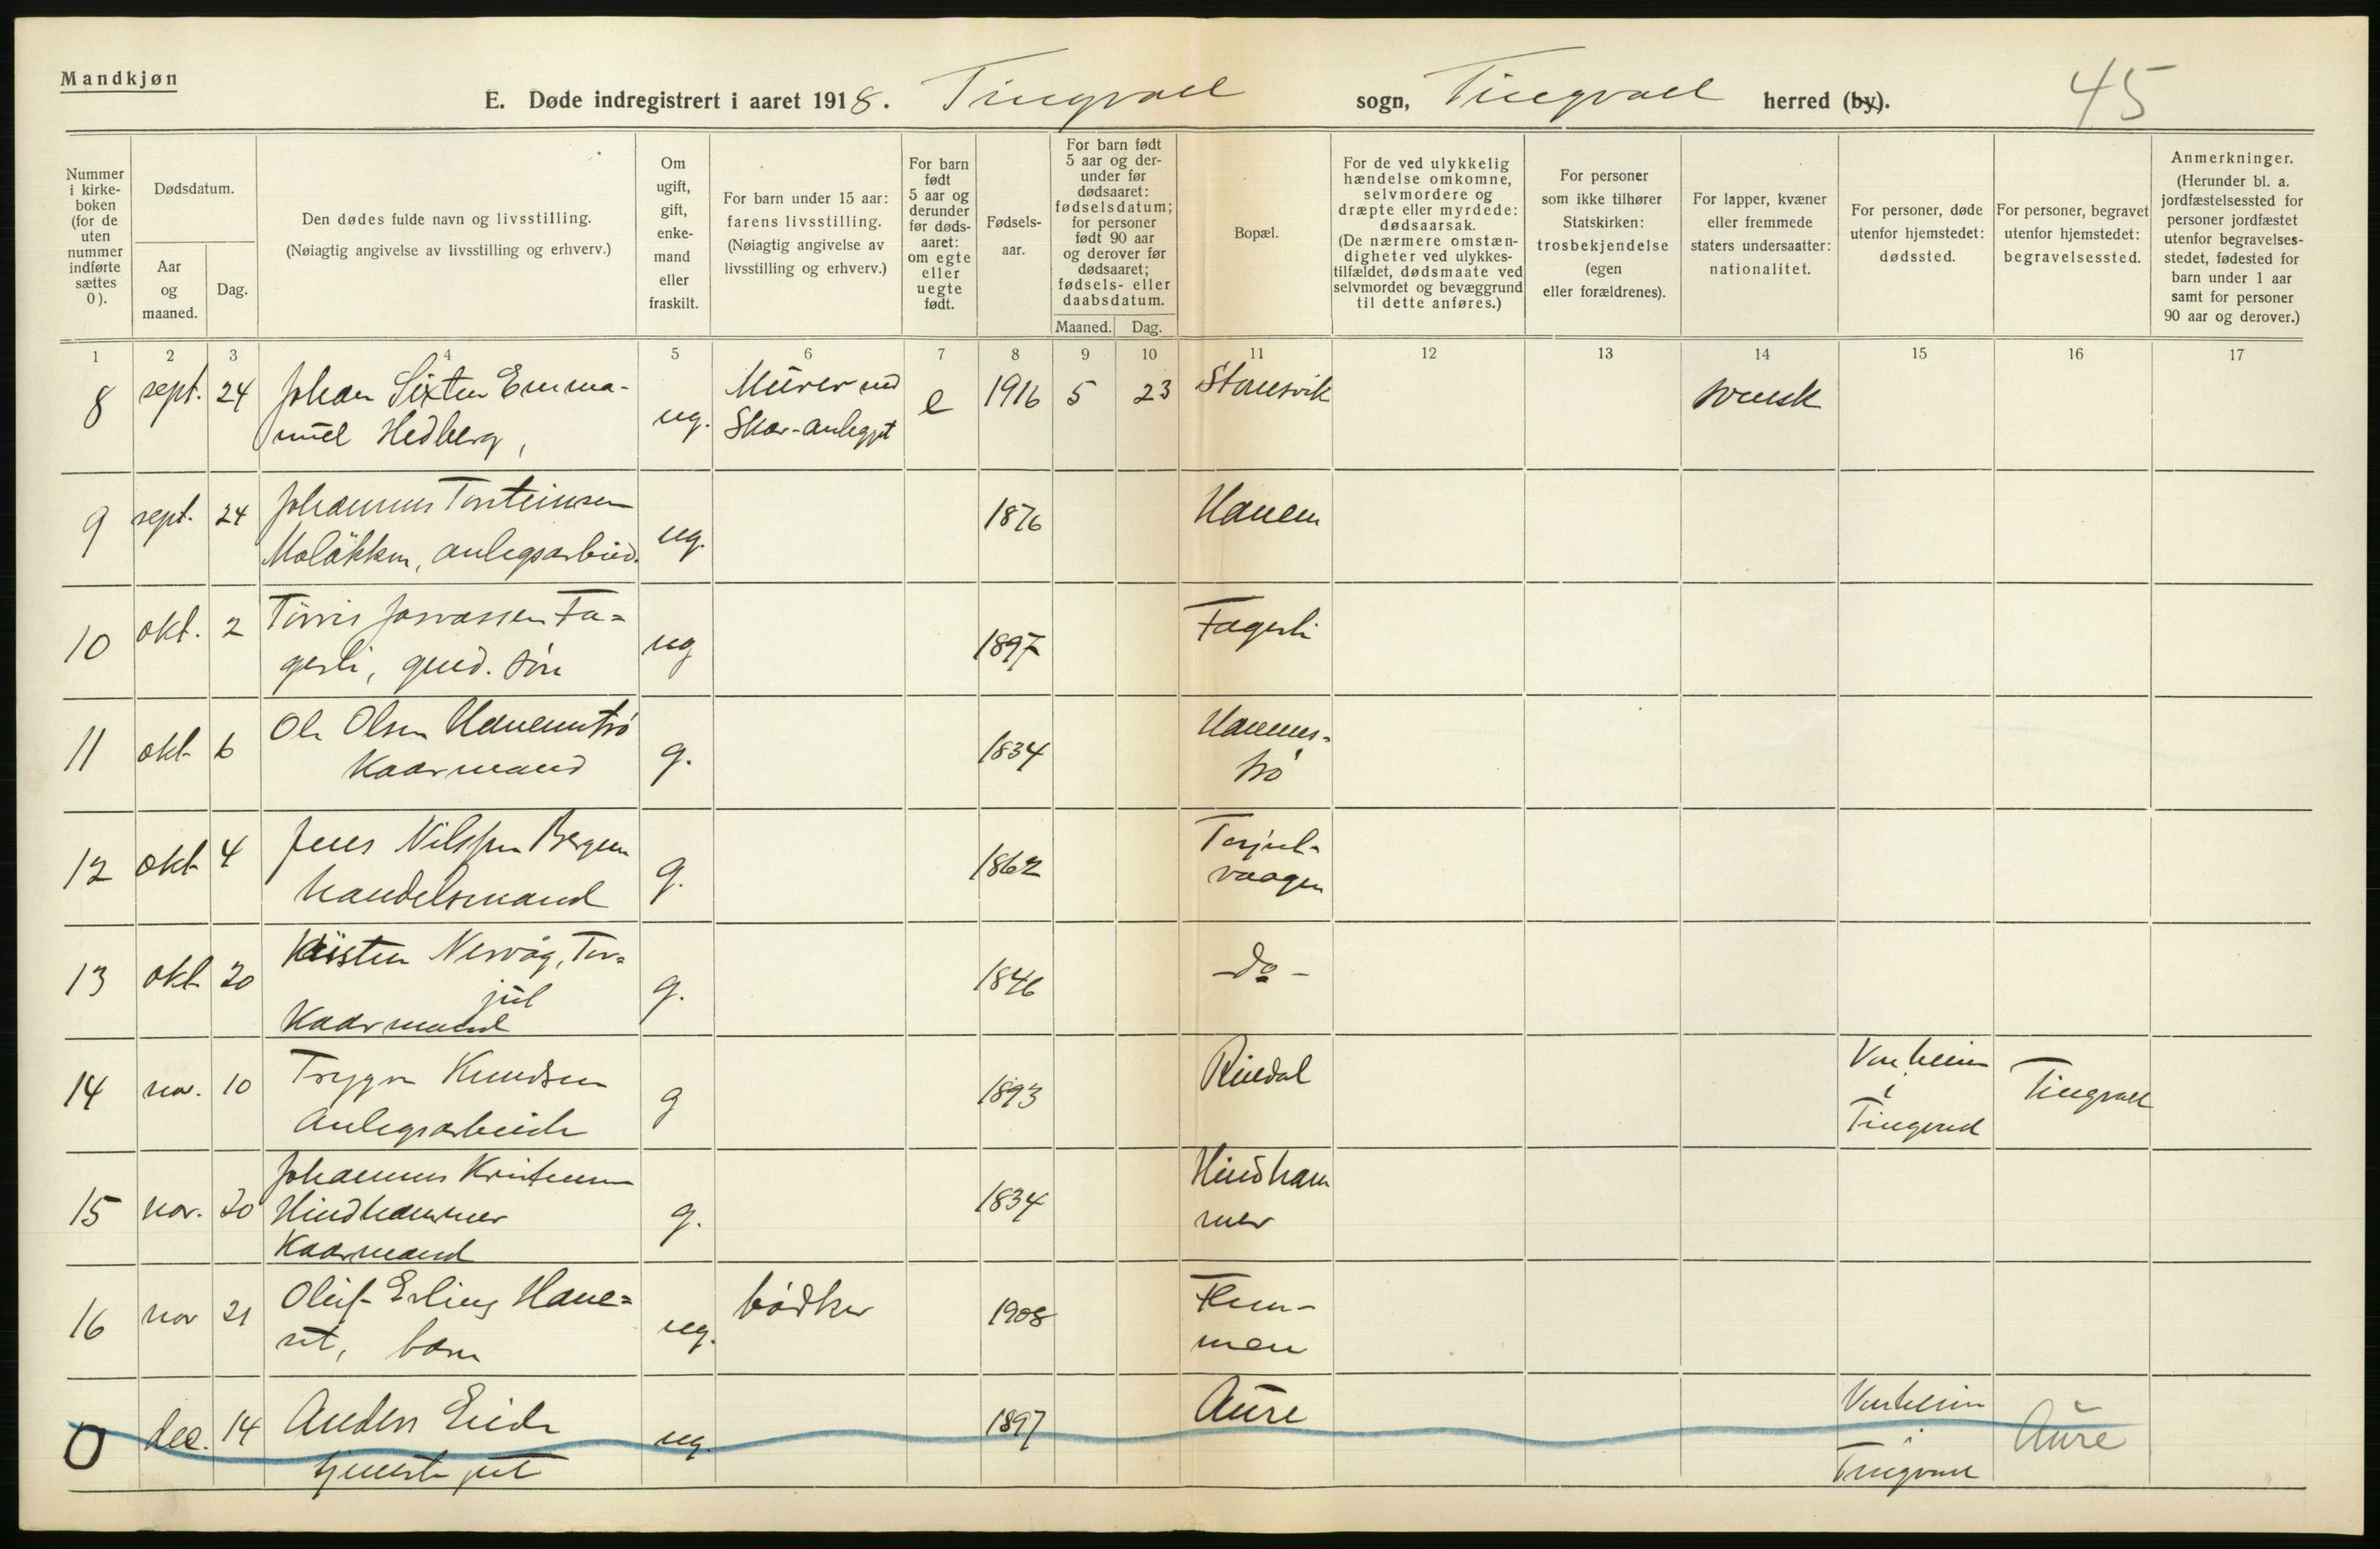 Mandkjøn
E. Døde indregistrert i aaret 1918. Tingvoll sogn, Tingvoll herred (by). 45
Nummer i kirkeboken (for de uten nummer indførte sættes 0).
Dødsdatum.
Aar og maaned.
Dag.
Den dødes fulde navn og livsstilling.
(Nøiagtig angivelse av livsstilling og erhverv.)
Om ugift, gift, enkemand eller fraskilt.
For barn under 15 aar: farens livsstilling.
(Nøiagtig angivelse av livsstilling og erhverv.)
For barn født 5 aar og derunder før dødsaaret: om egte eller uegte født.
Fødselsaar.
For barn født 5 aar og derunder før dødsaaret: fødselsdatum; for personer født 90 aar og derover før dødsaaret; fødsels- eller daabsdatum.
Maaned.
Dag.
Bopæl.
For de ved ulykkelig hændelse omkomne, selvmordere og dræpte eller myrdede: dødsaarsak.
(De nærmere omstændigheter ved ulykkestilfældet, dødsmaate ved selvmordet og bevæggrund til dette anføres.)
For personer som ikke tilhører Statskirken: trosbekjendelse (egen eller forældrenes).
For lapper, kvæner eller fremmede staters undersaatter: nationalitet.
For personer, døde utenfor hjemstedet: dødssted.
For personer, begravet utenfor hjemstedet: begravelsessted.
Anmerkninger.
(Herunder bl. a. jordfæstelsessted for personer jordfæstet utenfor begravelsesstedet, fødested for barn under 1 aar samt for personer 90 aar og derover.)
1 2 3 4 5 6 7 8 9 10 11 12 13 14 15 16 17
8 sept. 24 Johan Sixten Emma- ug. Murer ved e 1916 5 23 Stensvik svensk
nuel Hedberg, Skar-anlegget
9 sept. 24 Johannes Torsteinsen ug. 1876 Hanem
Moløkken, anlegsarbeid.
10 okt. 2 Tørris Josvassen Fa= ug 1897 Fagerli
gerli, gmd. søn
11 okt. 6 Ole Olsen Hanemstrø g. 1834 Hanems-
Kaarmand trø
12 okt 4 Jens Nilssen Bergem g. 1862 Torjul-
handelsmand vaagen
13 okt 20 Kristen Nervåg, Tor= g. 1846 - do -
jul
Kaarmand
14 nov. 10 Trygve Knudsen g 1893 Rindal Vonheim Tingvoll
Anlegsarbeider i
Tingvoll
15 nov. 20 Johannes Kristensen g. 1834 Hindham
Hindhammer mer
Kaarmand
16 nov 21 Oluf Erling Hane= ug. bødker 1908 Flem-
set, barn men
0 dec. 14 Anders Eide ug. 1897 Aure Vonheim Aure
tjenestegut i
Tingvoll